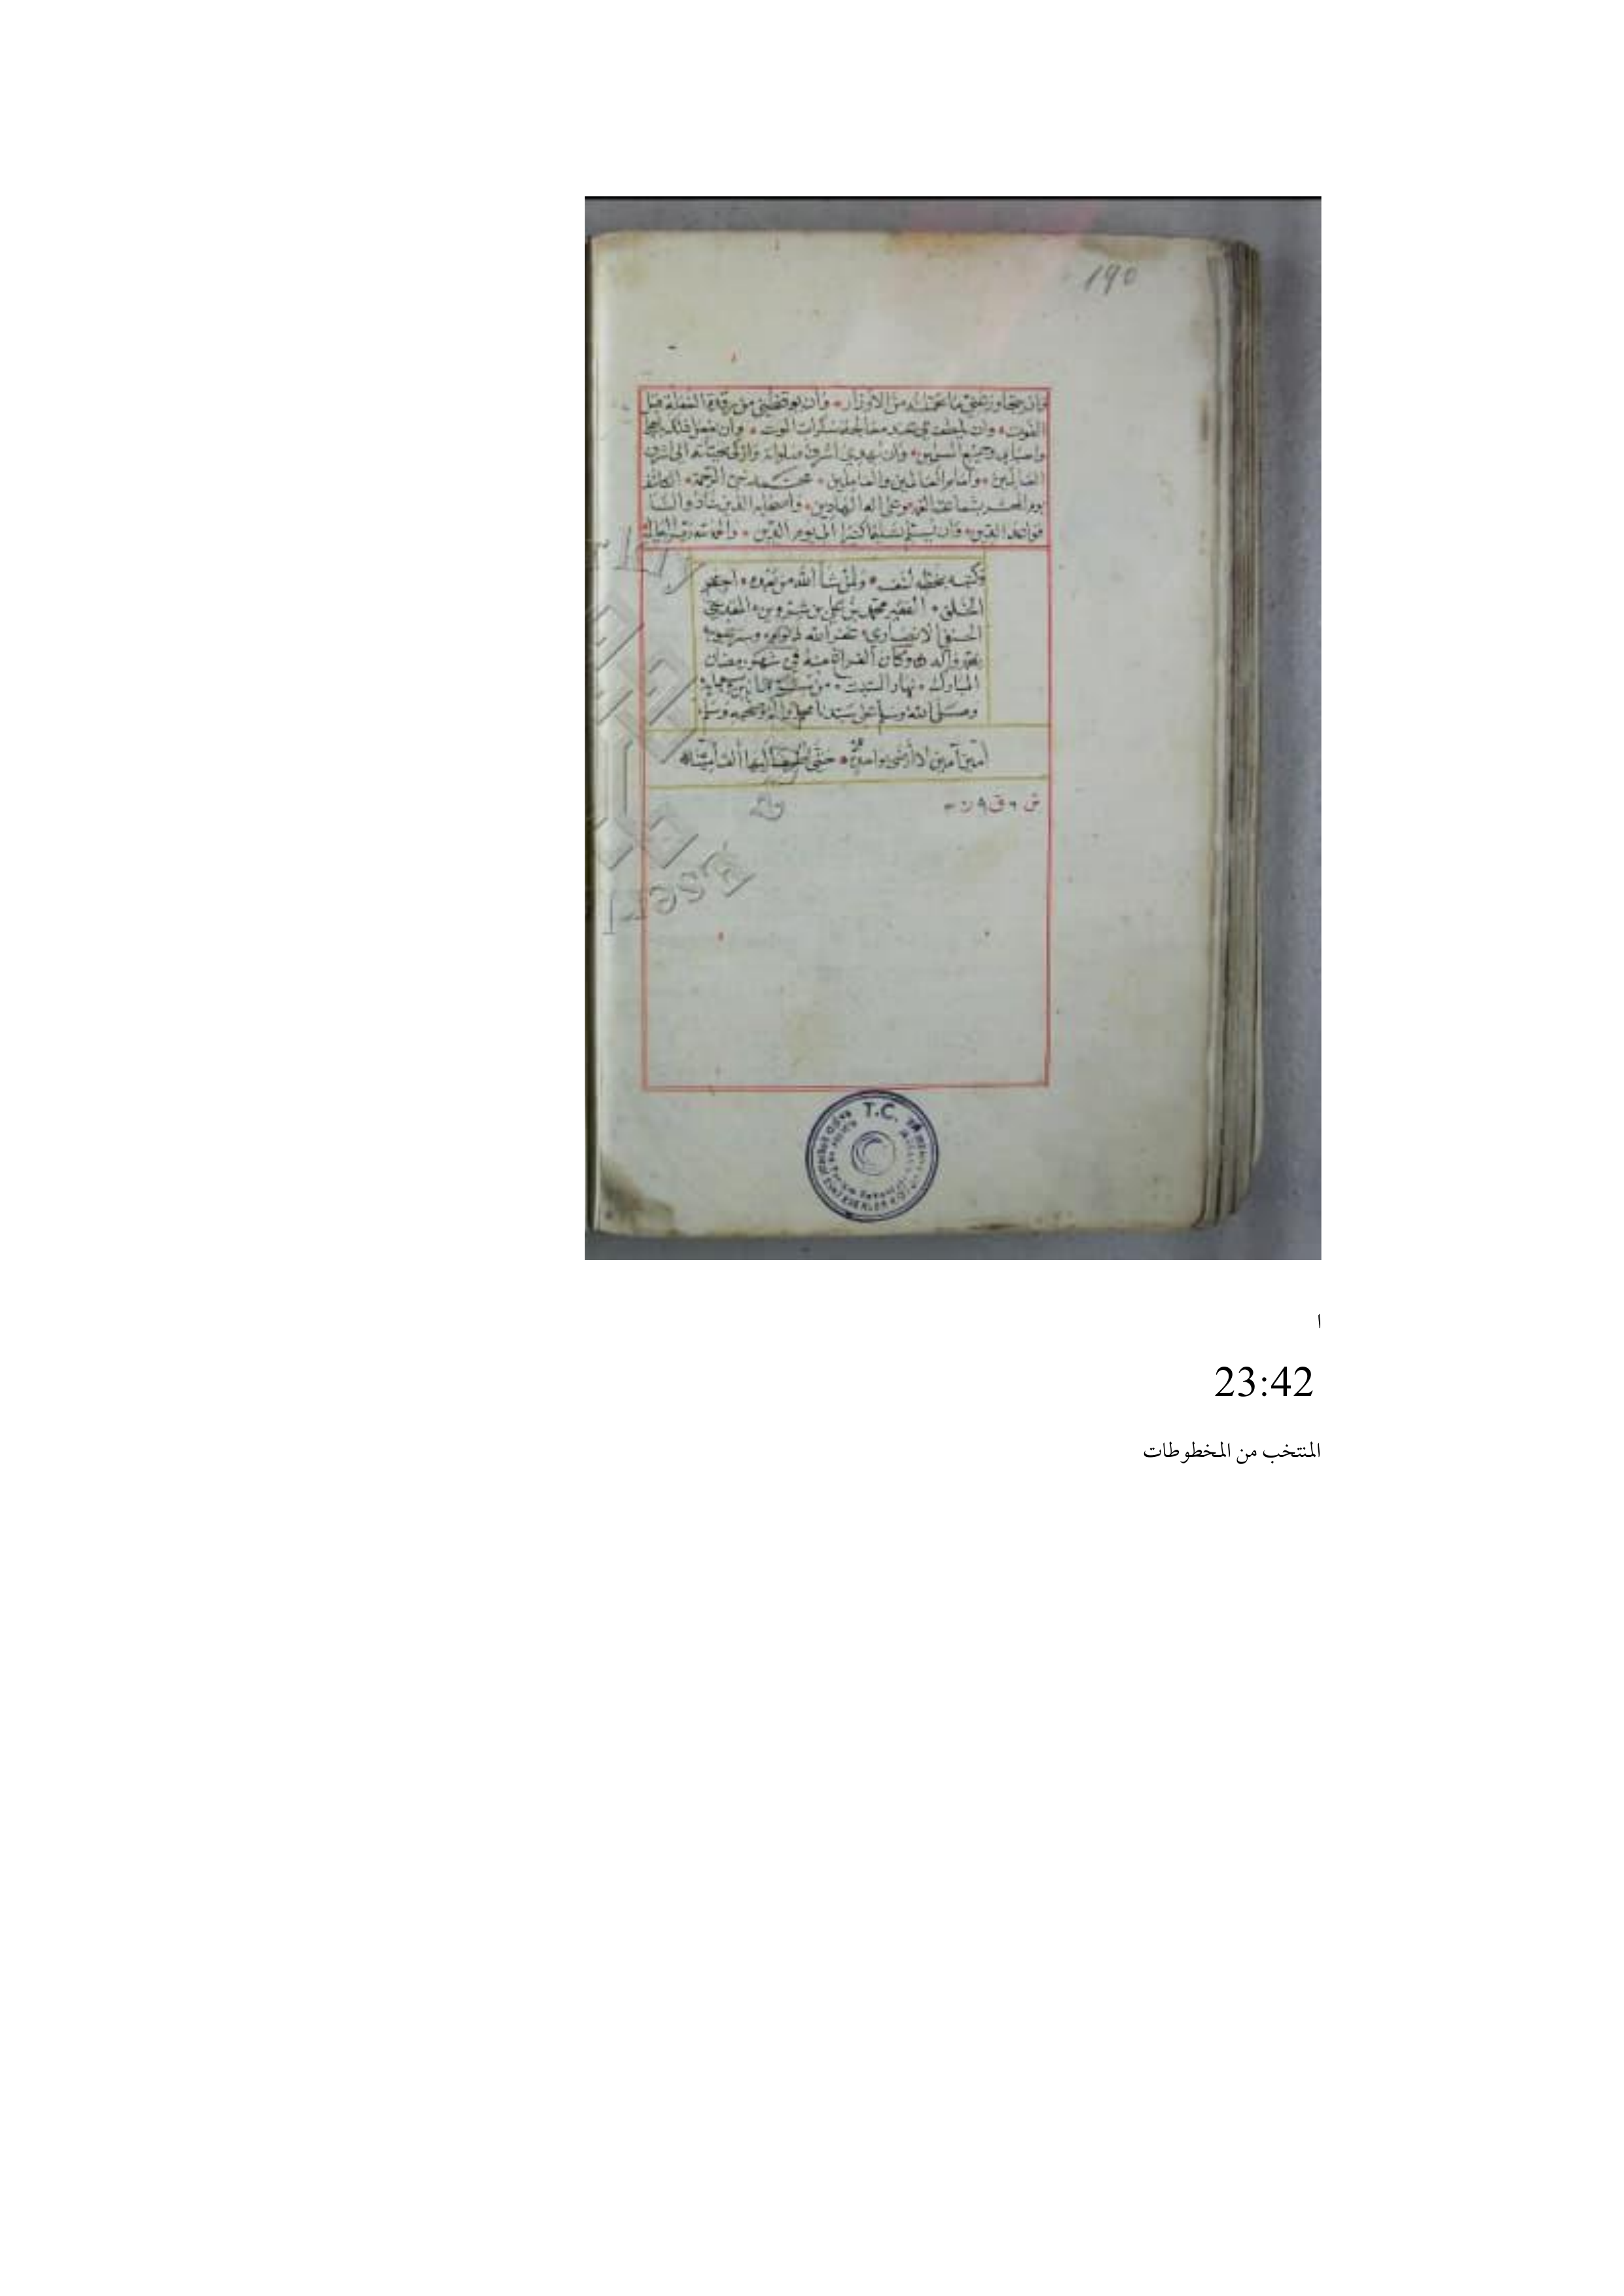 190
وان يتجاوز عني ما تحملته من الاوزار وأن يوقظني من رقدة الغفلة قبل
الفوت وان يلطف بي عند معالجة سكرات الموت وان يفعل ذلك
وجميع المسلمين وان يهدي اشرف صلواته وازكى تحياته الى اشرف
العالمين وامام العالمين والعاملين محمد نبي الرحمة
يوم المحشر وعلى اله الهادين واصحابه الذين شادوا لنا
قواعد الدين وان يسلم تسليما كثيرا الى يوم الدين والحمد لله رب العالمين
وكتبه بخطه لنفسه ولمن شاء الله من بعده احقر
الخلق الفقير محمد بن علي بن المقدسي
الحنفي الانصاري غفر الله له ولوالديه وستر عيوبه
بمحمد وآله وكان الفراغ منه في شهر رمضان
المبارك نهار السبت من سنة
وصلى الله وسلم على سيدنا محمد وآله وصحبه وسلم
آمين آمين لا أرضى بواحدة حتى أضيف اليها ألف آمينا
T.C.
ا
23:42
المنتخب من المخطوطات